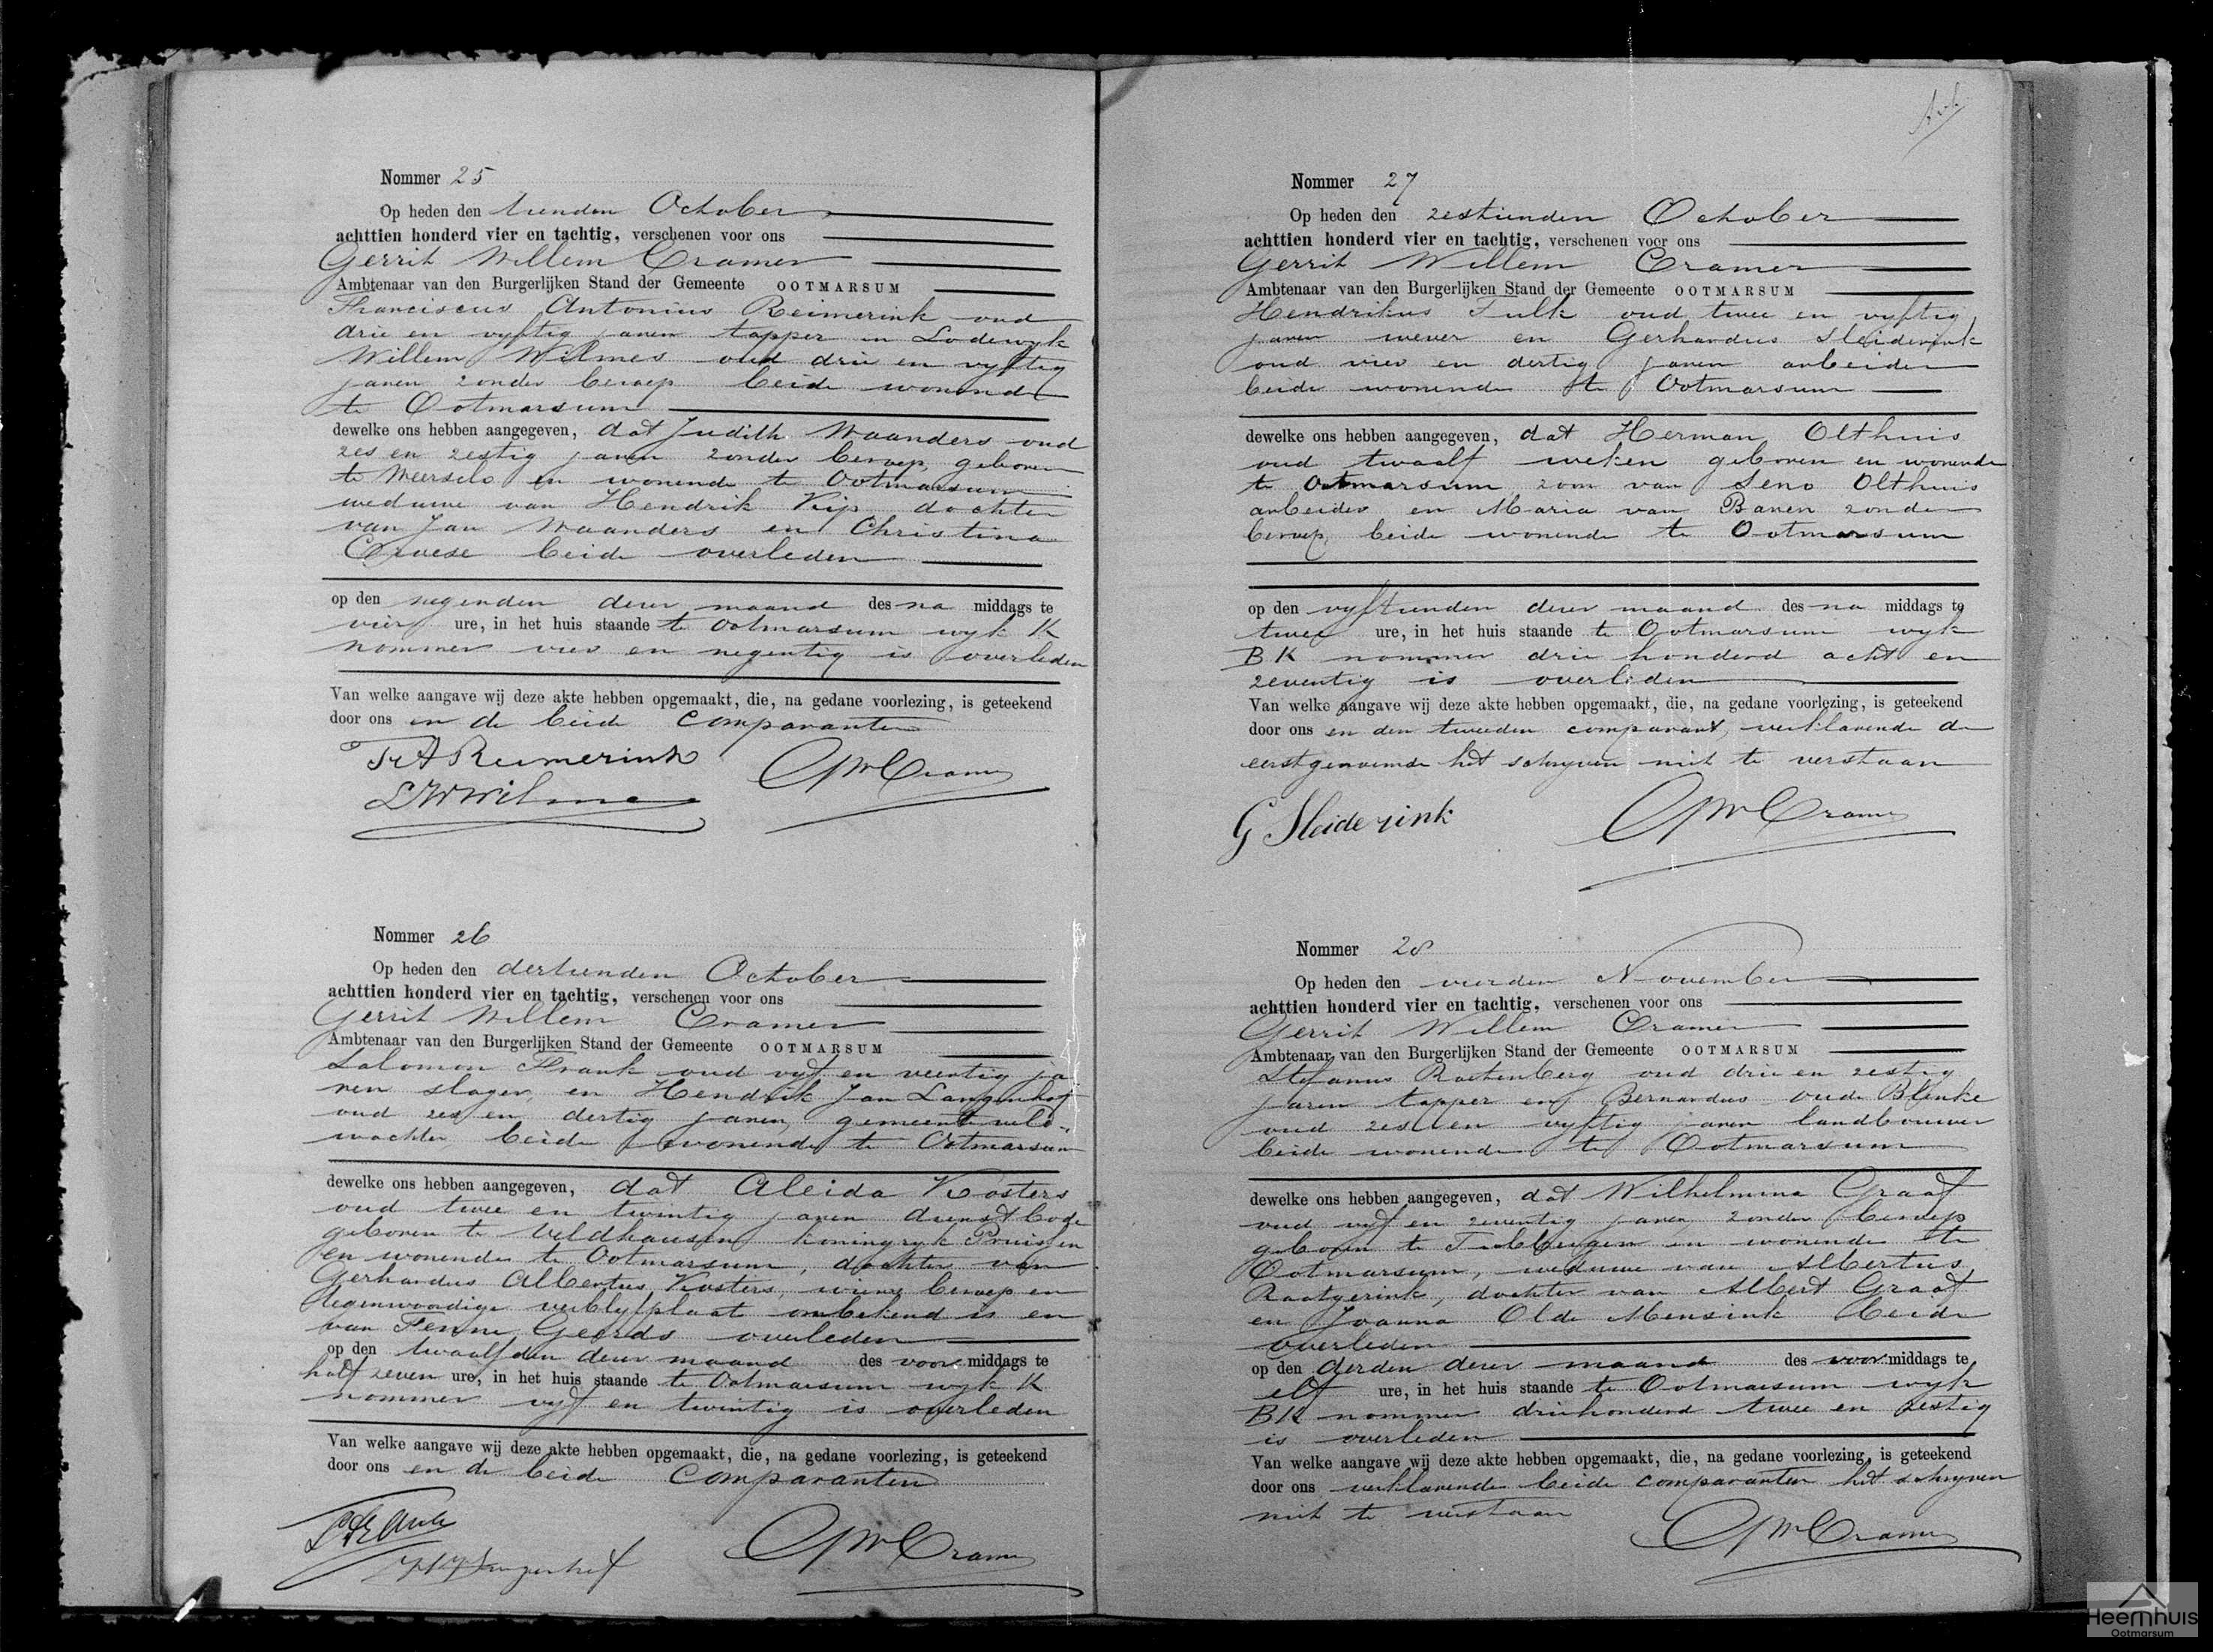 Nommer 25
Op heden den tienden October
achttien honderd vier en tachtig, verschenen voor ons
Gerrit Willem Cramer
Ambtenaar van den Burgerlijken Stand der Gemeente OOTMARSUM
Franciscus Antonius Reimerink oud
drie en vyftig jaren tapper en Lodewyk
Willem Wilmes oud drie en vyftig
jaren zonder beroep beide wonende
te Ootmarsum
dewelke ons hebben aangegeven, dat Judith Waanders oud
zes en zestig jaren zonder beroep, geboren
te Weerselo en wonende te Ootmarsum
weduwe van Hendrik Kip dochter
van Jan Waanders en Christina
Croese beide overleden
op den negenden dezer maand des na middags te
vier ure, in het huis staande te Ootmarsum wyk K
nommer vier en negentig is overleden
Van welke aangave wij deze akte hebben opgemaakt, die, na gedane voorlezing, is geteekend
door ons en de beide comparanten
FrA Reimerink
GW Cramer
LWWilmes
Nommer 26
Op heden den dertienden October
achttien honderd vier en tachtig, verschenen voor ons
Gerrit Willem Cramer
Ambtenaar van den Burgerlijken Stand der Gemeente OOTMARSUM
Salomon Frank oud vyf en veertig ja
ren slager, en Hendrik Jan Langenhof
oud zes en dertig jaren, gemeenteveld-
wachter, beide wonende te Ootmarsum
dewelke ons hebben aangegeven, dat Aleida Kosters
oud twee en twintig jaren dienstbode
geboren te Veldhausen koningryk Pruissen
en wonende te Ootmarsum, dochter van
Gerhardus Albertus Kosters, wiens beroep en
tegenwoordige verblyfplaat onbekend is en
van Fenne Geerds overleden
op den twaalfden dezer maand des voor middags te
half zeven ure, in het huis staande te Ootmarsum wyk K
nommer vyf en twintig is overleden
Van welke aangave wij deze akte hebben opgemaakt, die, na gedane voorlezing, is geteekend
door ons en de beide comparanten
GW Cramer
HJLangenhof
Nommer 27
Op heden den zestienden October
achttien honderd vier en tachtig, verschenen voor ons
Gerrit Willem Cramer
Ambtenaar van den Burgerlijken Stand der Gemeente OOTMARSUM
Hendrikus Tulk oud twee en vyftig
jaren wever en Gerhardus Sleiderink
oud vier en dertig jaren arbeider
beide wonende te Ootmarsum
dewelke ons hebben aangegeven, dat Herman Olthuis
oud twaalf weken geboren en wonende
te Ootmarsum zoon van Seno Olthuis
arbeider en Maria van Baren zonder
beroep, beide wonende te Ootmarsum
op den vyftienden dezer maand des na middags te
twee ure, in het huis staande te Ootmarsum wyk
BK nommer drie honderd acht en
zeventig is overleden
Van welke aangave wij deze akte hebben opgemaakt, die, na gedane voorlezing, is geteekend
door ons en den tweeden comparant, verklarende de
eerstgenoemde het schryven niet te verstaan
G Sleiderink
GW Cramer
Nommer 28
Op heden den vierden November
achttien honderd vier en tachtig, verschenen voor ons
Gerrit Willem Cramer
Ambtenaar van den Burgerlijken Stand der Gemeente OOTMARSUM
Stefanus Rothenberg oud drie en zestig
jaren tapper en Bernardus oude Blenke
oud zes en vyftig jaren landbouwer
beide wonende te Ootmarsum
dewelke ons hebben aangegeven, dat Wilhelmina Graaf
oud vyf en zeventig jaren, zonder beroep
geboren te Tubbergen en wonende te
Ootmarsum, weduwe van Albertus
Raatgerink, dochter van Albert Graaf
en Joanna Olde Mensink beide
overleden
op den derden dezer maand des voor middags te
elf ure, in het huis staande te Ootmarsum wyk
BK nommer driehonderd twee en zestig
is overleden
Van welke aangave wij deze akte hebben opgemaakt, die, na gedane voorlezing, is geteekend
door ons verklarende beide comparanten het schryven
niet te verstaan
GW Cramer
Heernhuis
Ootmarsum